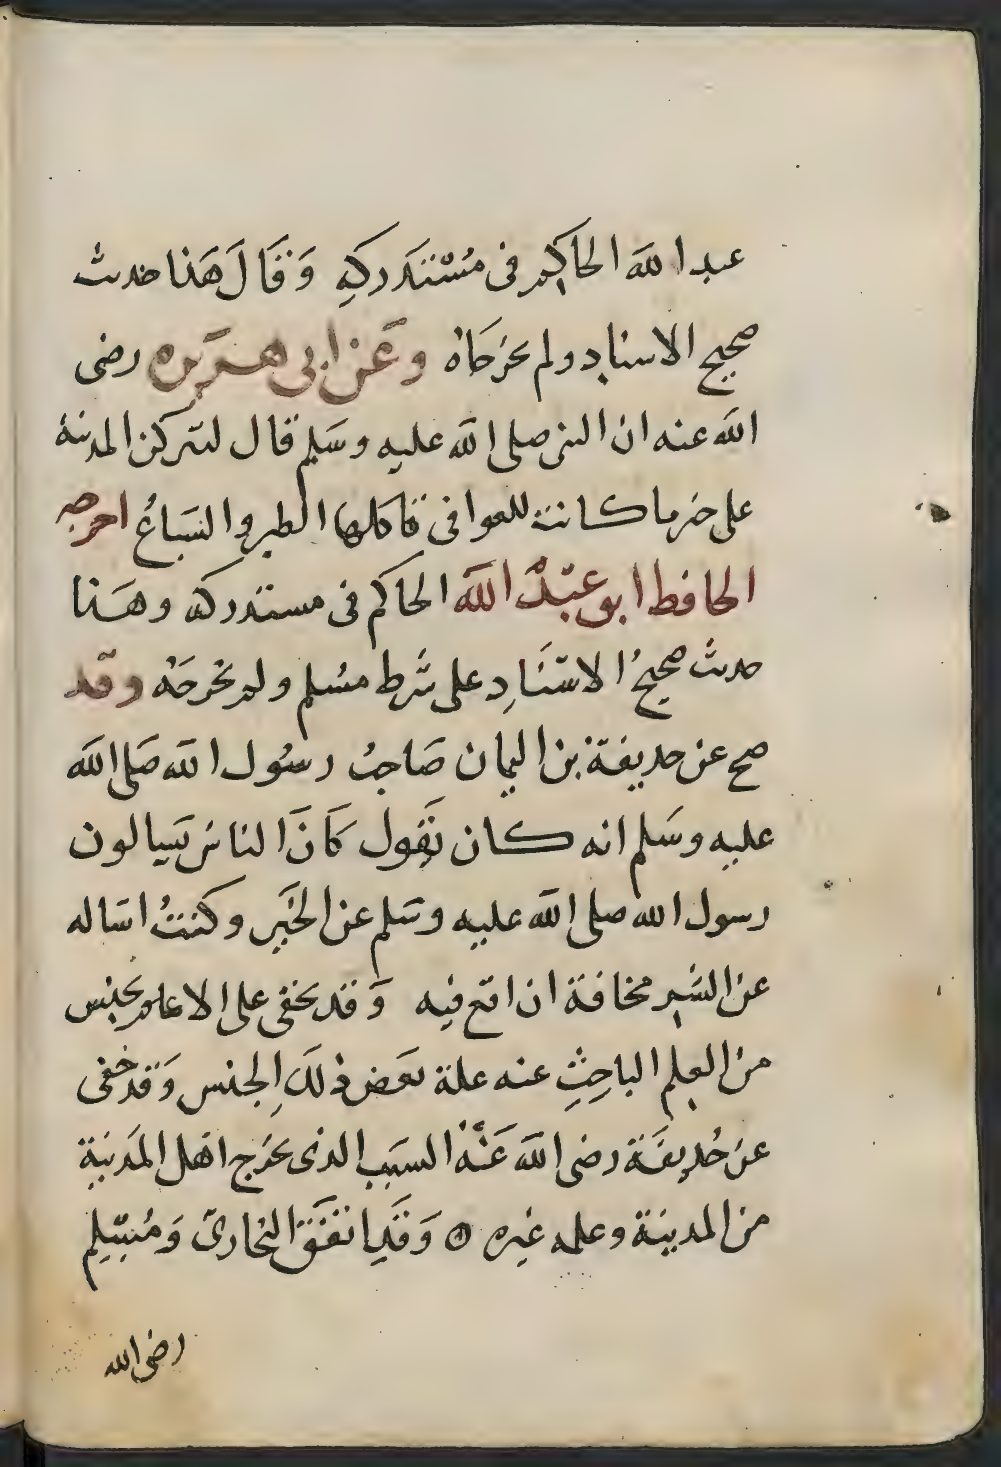 عبد الله الحاكم فى مُسْتَدركِهِ وَقَالَ هَذا حديث
صحيح الاسناد ولم يخرجَاهُ وعَن ابى هريره رضى
الله عنه ان النبى صلى الله عليه وسَلم قال لتتركن المدينة
على خير ما كانت للعوافى تاكلها الطير والسَباعُ اخرجه
الحافظ ابو عبْد الله الحاكم فى مستدركه وهَذا
حديث صحيحُ الاسْنَادِ على شَرط مسْلم ولم يخرجَهْ وقد
صح عن حذيفة بن اليمان صَاحبُ رسُول الله صَلى الله
عليه وسَلم انه كان يَقول كَانَ الناسُ يسَالون
رسول الله صلى الله عليه وسَلم عن الخَير وكنتُ اسَاله
عن الشر مخافة ان اقع فيه وَقد يخفى على الاعلم بجنس
من العِلم الباحِثِ عنه علة بَعض ذلَك الجنس وَقد خفى
عن حُذيفَة رضى الله عَنْهُ السَبَب الذى يخرج اهْل المَدينة
من المدينة وعلمه غيره ۞ وَقَد اتفَقَ البخارىّ وَمُسْلِم
رضى الله